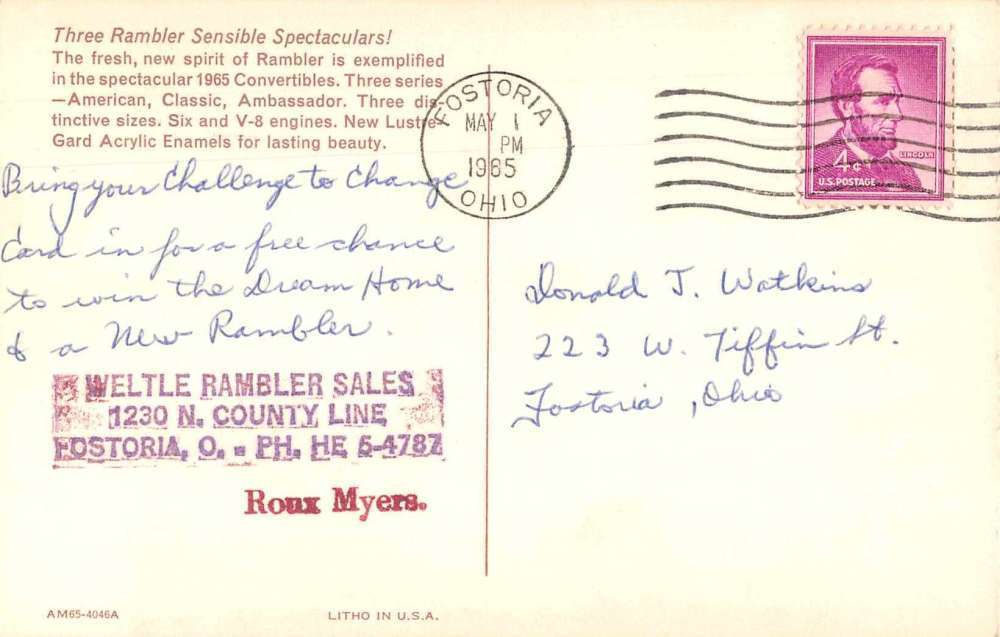 Three Rambler Sensible Spectaculars!
The fresh, new spirit of Rambler is exemplified
in the spectacular 1965 Convertibles. Three series
—American, Classic, Ambassador. Three dis-
tinctive sizes. Six and V-8 engines. New Lustre-
Gard Acrylic Enamels for lasting beauty.
Bring your Challenge to Change
Card in for a free chance
to win the Dream Home
& a New Rambler.
WELTLE RAMBLER SALES
1230 N. COUNTY LINE
FOSTORIA, O. - PH. HE 5-4787
Roux Myers.
AM65-4046A
LITHO IN U.S.A.
FOSTORIA
MAY 1
PM
1965
OHIO
LINCOLN
4¢
U.S. POSTAGE
Donald J. Watkins
223 W. Tiffin St.
Fostoria, Ohio